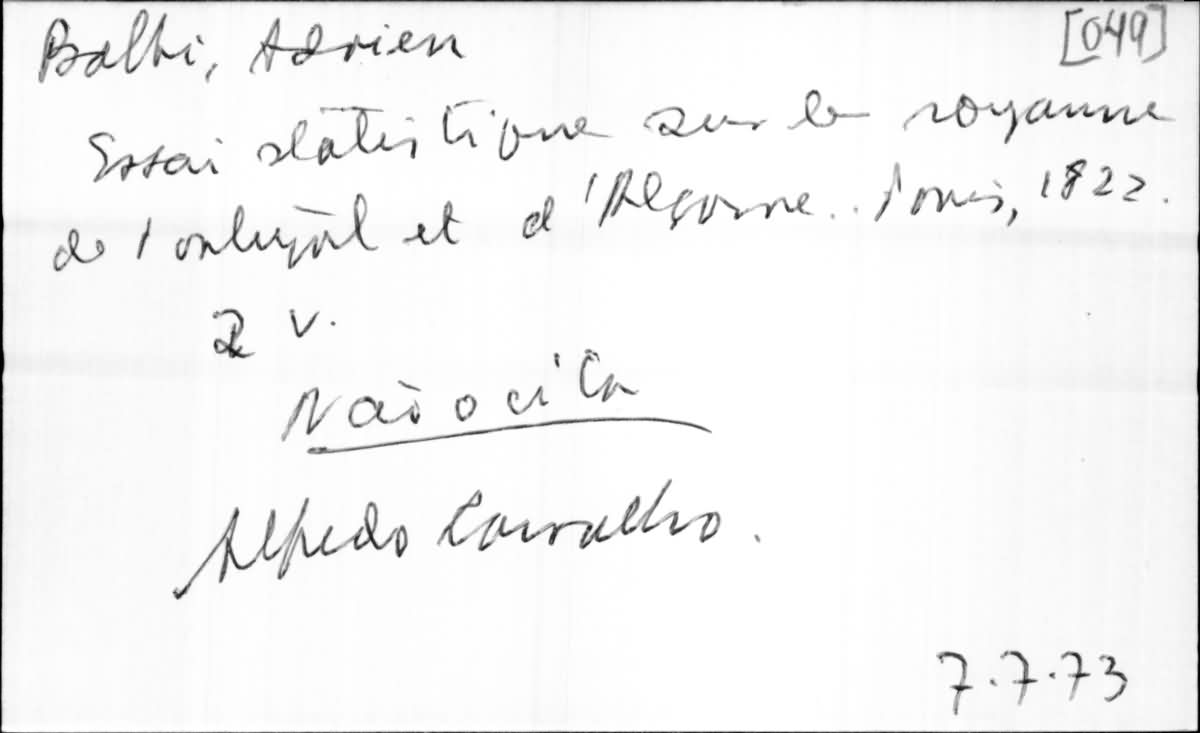 Balbi, Adrien [049]
Essai statistique sur le royaume
de Portugal et d'Algarve. Paris, 1822.
2 v.
Não o cita
Alfredo Carvalho.
7.7.73